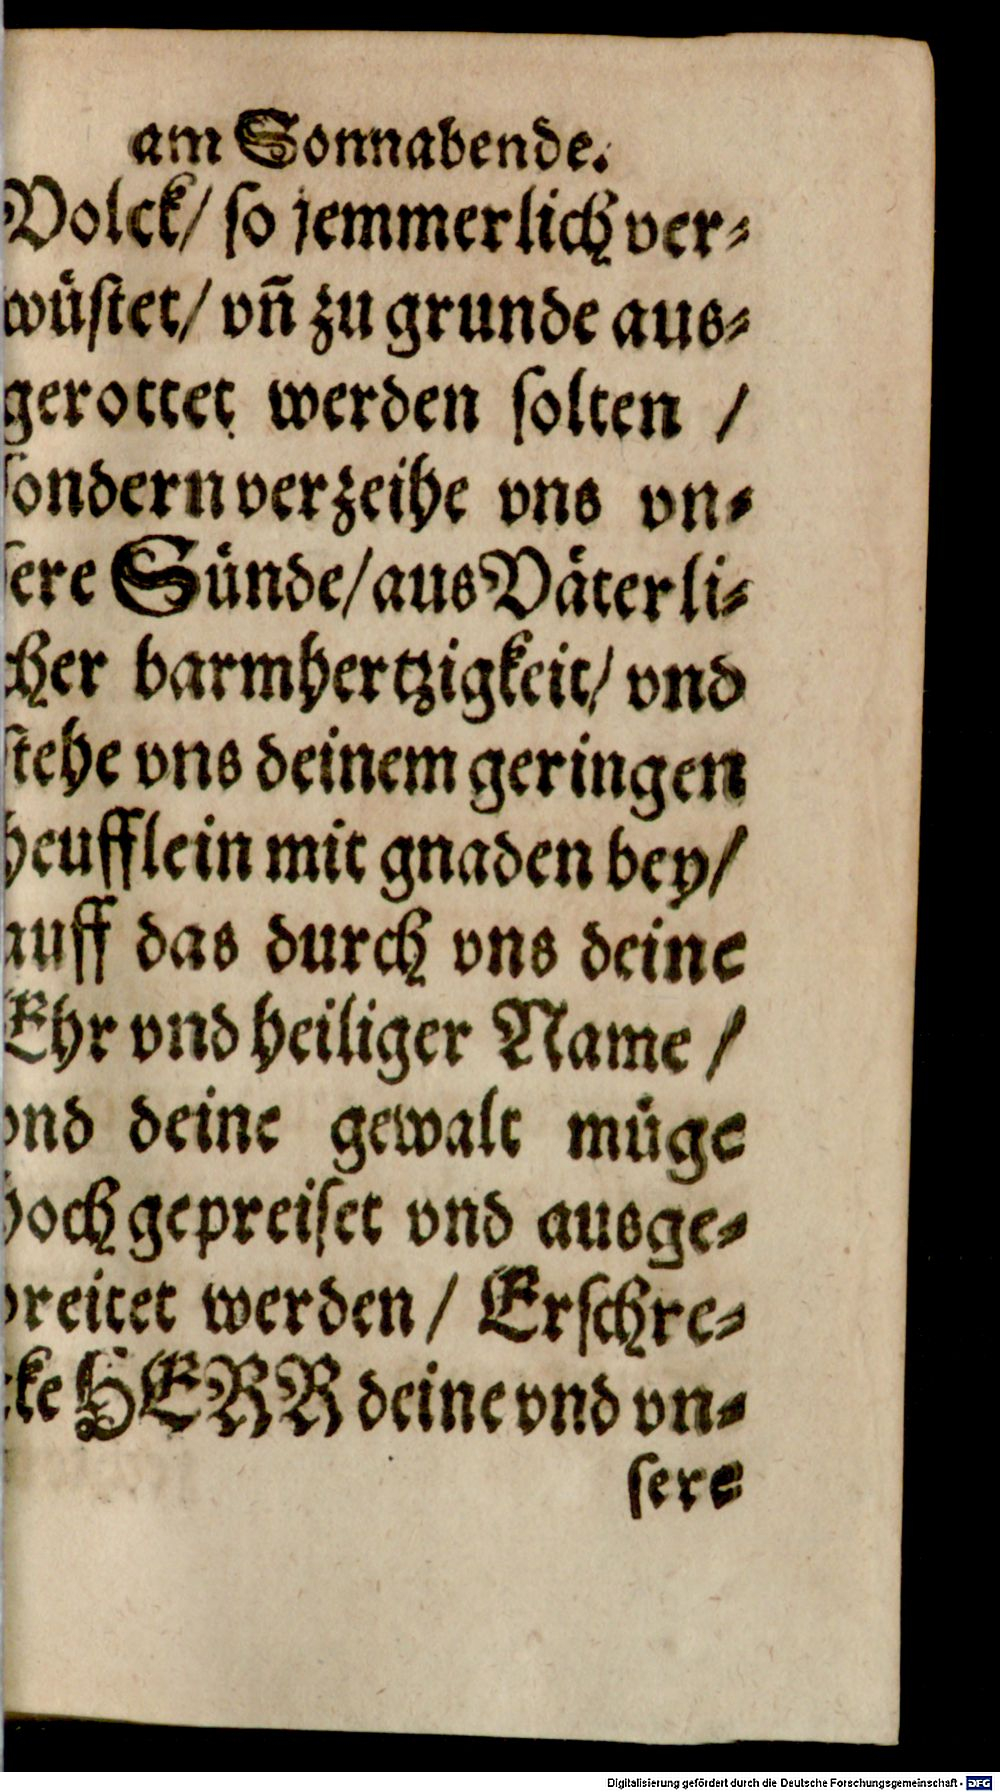 am Sonnabende.
Volck/ so jemmerlich ver-
wüstet/ vñ zu grunde aus-
gerottet werden solten /
sondern verzeihe vns vn-
sere Sünde/ aus Väterli-
cher barmhertzigkeit/ vnd
stehe vns deinem geringen
heufflein mit gnaden bey/
auff das durch vns deine
Ehr vnd heiliger Name /
vnd deine gewalt müge
hoch gepreiset vnd ausge-
breitet werden / Erschre-
cke HERR deine vnd vn-
sere
Digitalisierung gefördert durch die Deutsche Forschungsgemeinschaft - DFG